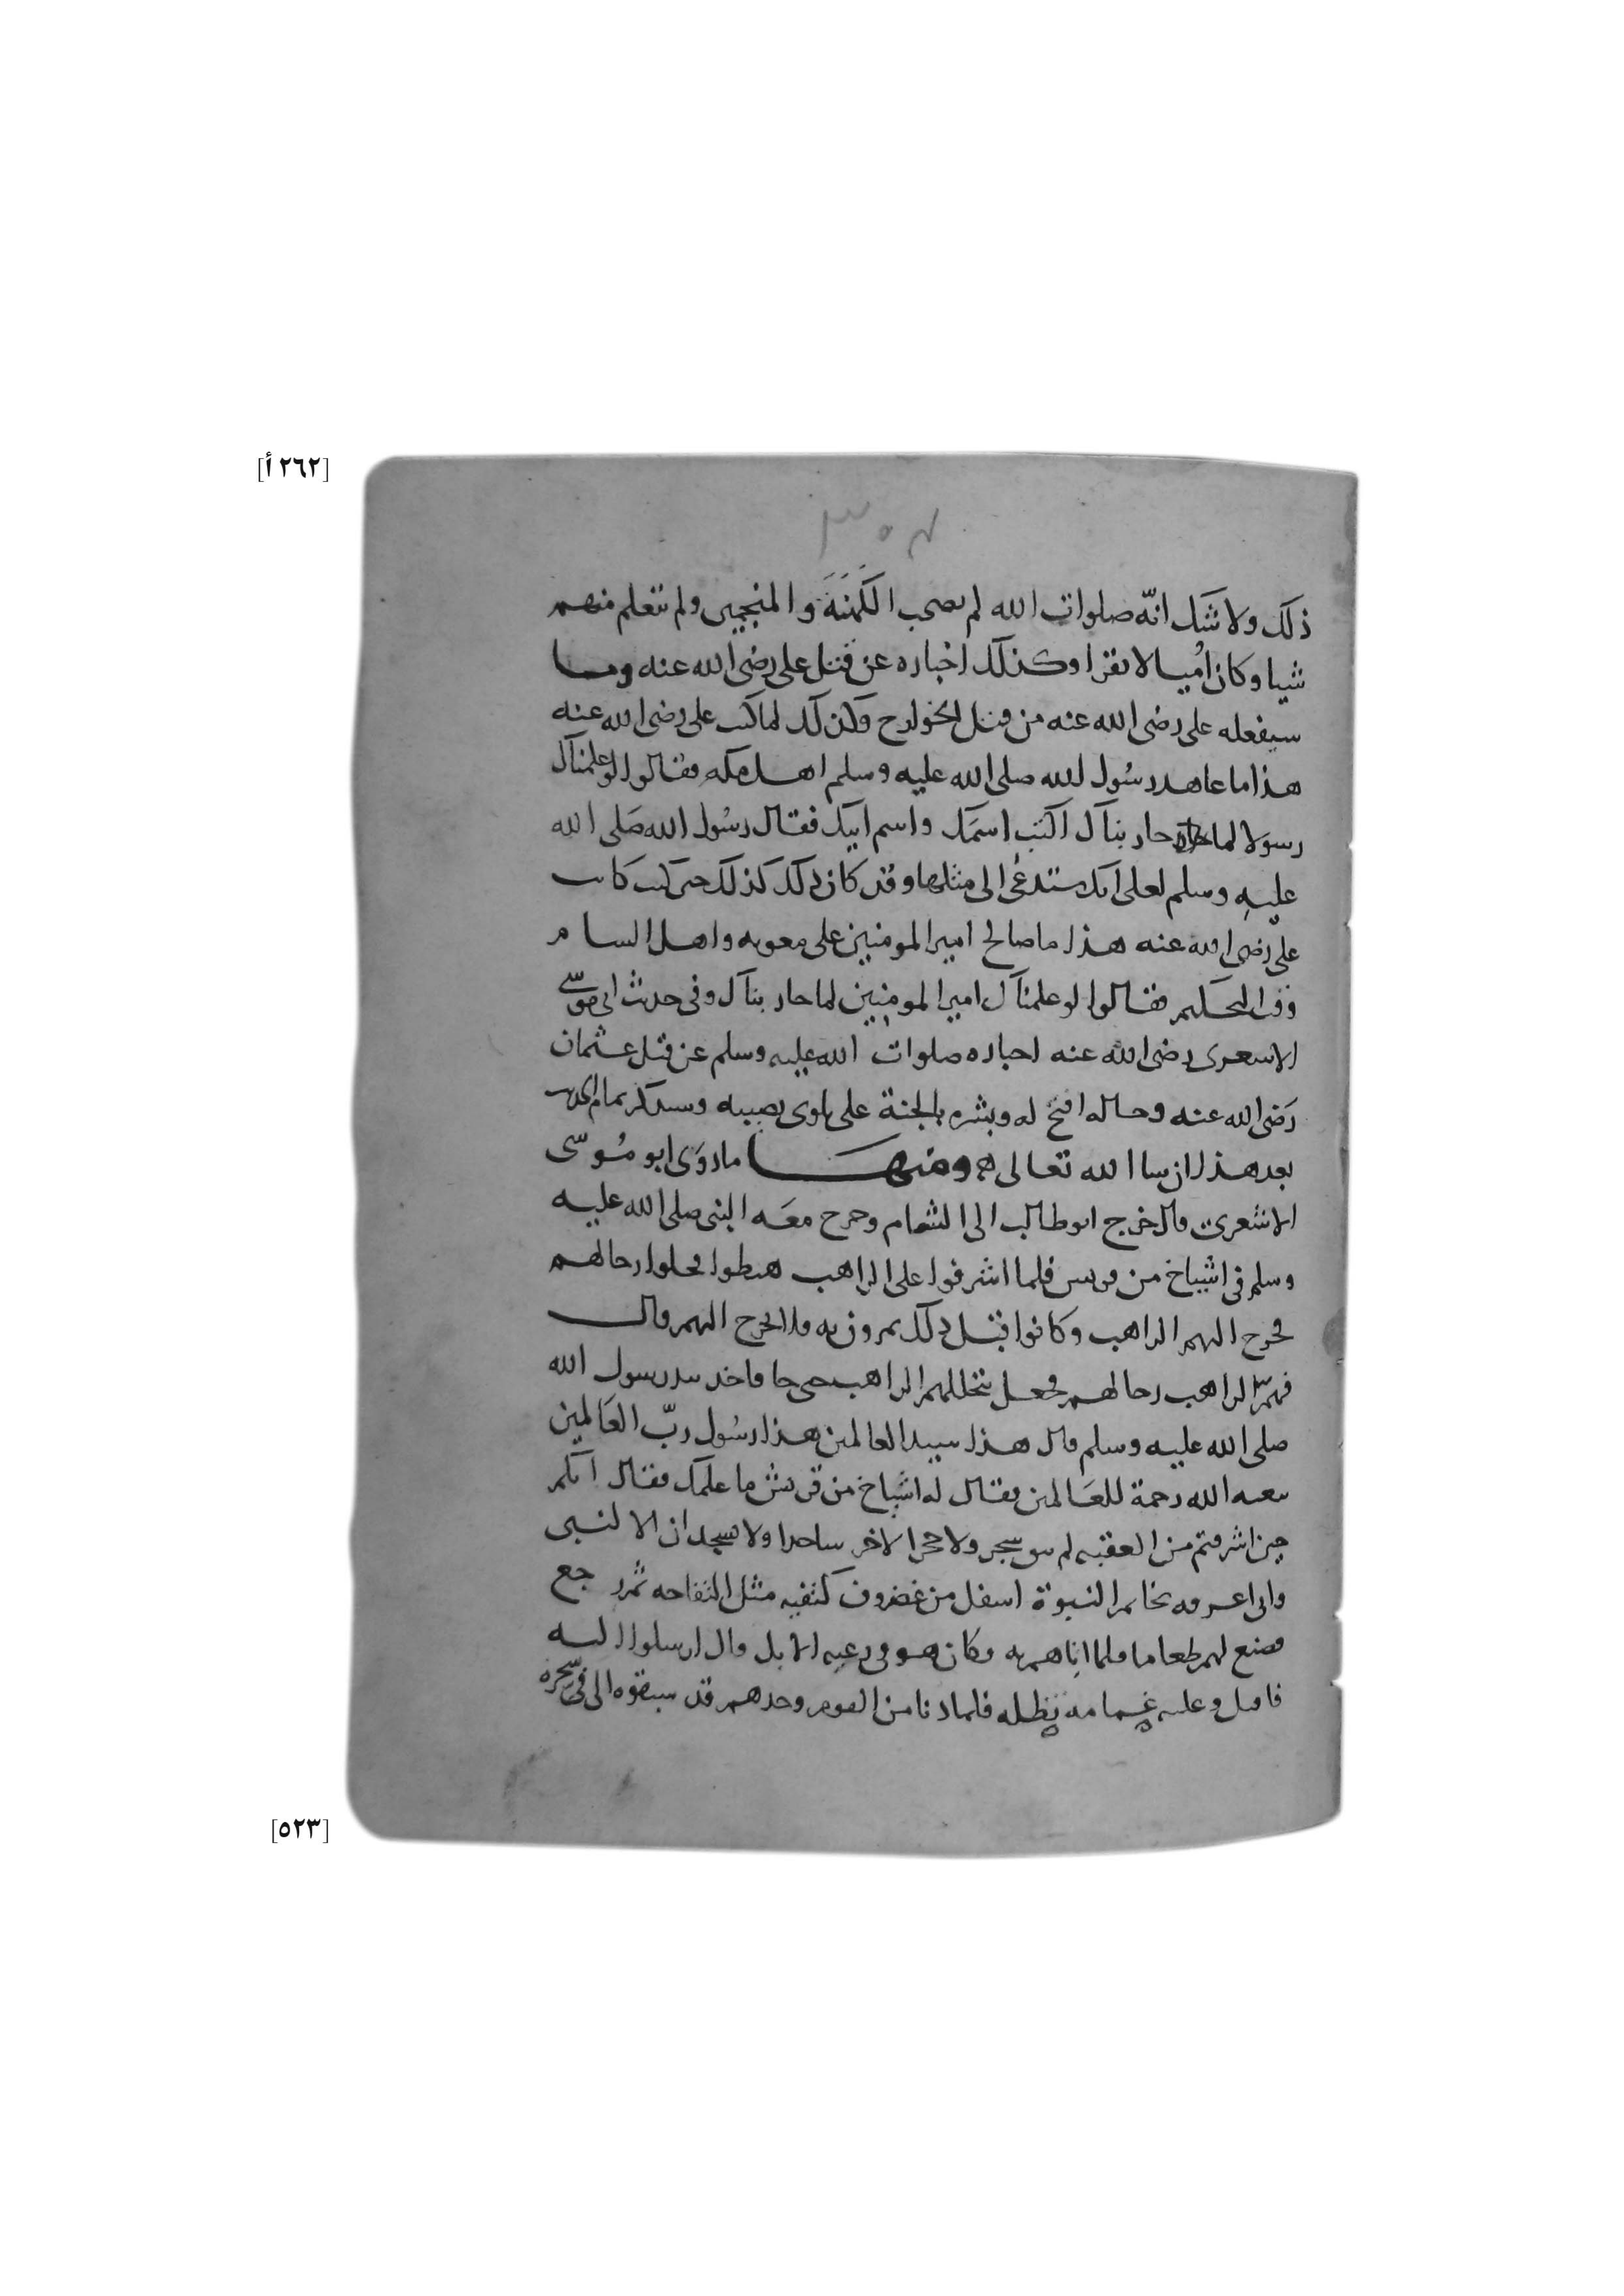 [٢٦٢ أ]
ذلك ولا شك انّه صلوات الله لم يصحب الكهنة والمنجمين ولم يتعلم منهم
شيا وكان أميا لا يقرا وكذلك اخباره عن قتل على رضى الله عنه وما
سيفعله على رضى الله عنه من قتل الخوارج وكذلك لما كتب على رضى الله عنه
هذا ما عاهد رسُول الله صلى الله عليه وسلم اهل مكه فقالوا لو علمناك
رسولا لما حاربناك اكتب اسمك واسم ابيك فقال رسُول الله صَلى الله
عليه وسلم لعلى انك ستدعى الى مثلها وقد كان ذلك كذلك حين كتب كاتب
على رضى الله عنه هذا ما صالح امير المومنين على معويه واهل السام
وقت التحكيم فقالوا لو علمناك امير المومنين لما حاربناك وفى حديث ابى موسى
الاسعرى رضى الله عنه اخباره صلوات الله عليه وسلم عن قتل عثمان
رَضى الله عنه وحاله افتح له وبشره بالجنة على بلوى تصيبه وسنذكر تمام الحديث
بعد هذا ان سا الله تعالى ومنهَا ما روَى ابو مُوسّى
الاشعرى قال خرج ابو طالب الى الشام وخرج معَه النبى صلى الله عليه
وسلم فى اشياخ من قريش فلما اشرفوا على الراهب هبطوا فحلوا رحالهم
فخرج اليهم الراهب وكانوا قبل ذلك يمرون به فلا يخرج اليهم قال
فهم الراهب رحالهم فجعل يتخللهم الراهب حتى جا فاخذ بيد رسول الله
صلى الله عليه وسلم قال هذا سيد العالمين هذا رسُول ربّ العَالمين
يبعثه الله رحمة للعَالمين فقال له اشياخ من قريش ما علمك فقال انكم
حين اشرفتم من العقبه لم يبق شجر ولا حجر الا خر ساجدا ولا يسجدان الا لنبى
وانى اعرفه بخاتم النبوة اسفل من غضروف كتفيه مثل التفاحه ثم رجع
فصنع لهم طعاما فلما اتاهم به وكان هو فى رعيه الابل قال ارسلوا اليه
فاقبل وعليه غمامه تظله فلما دنا من القوم وجدهم قد سبقوه الى فى شجره
[٥٢٣]